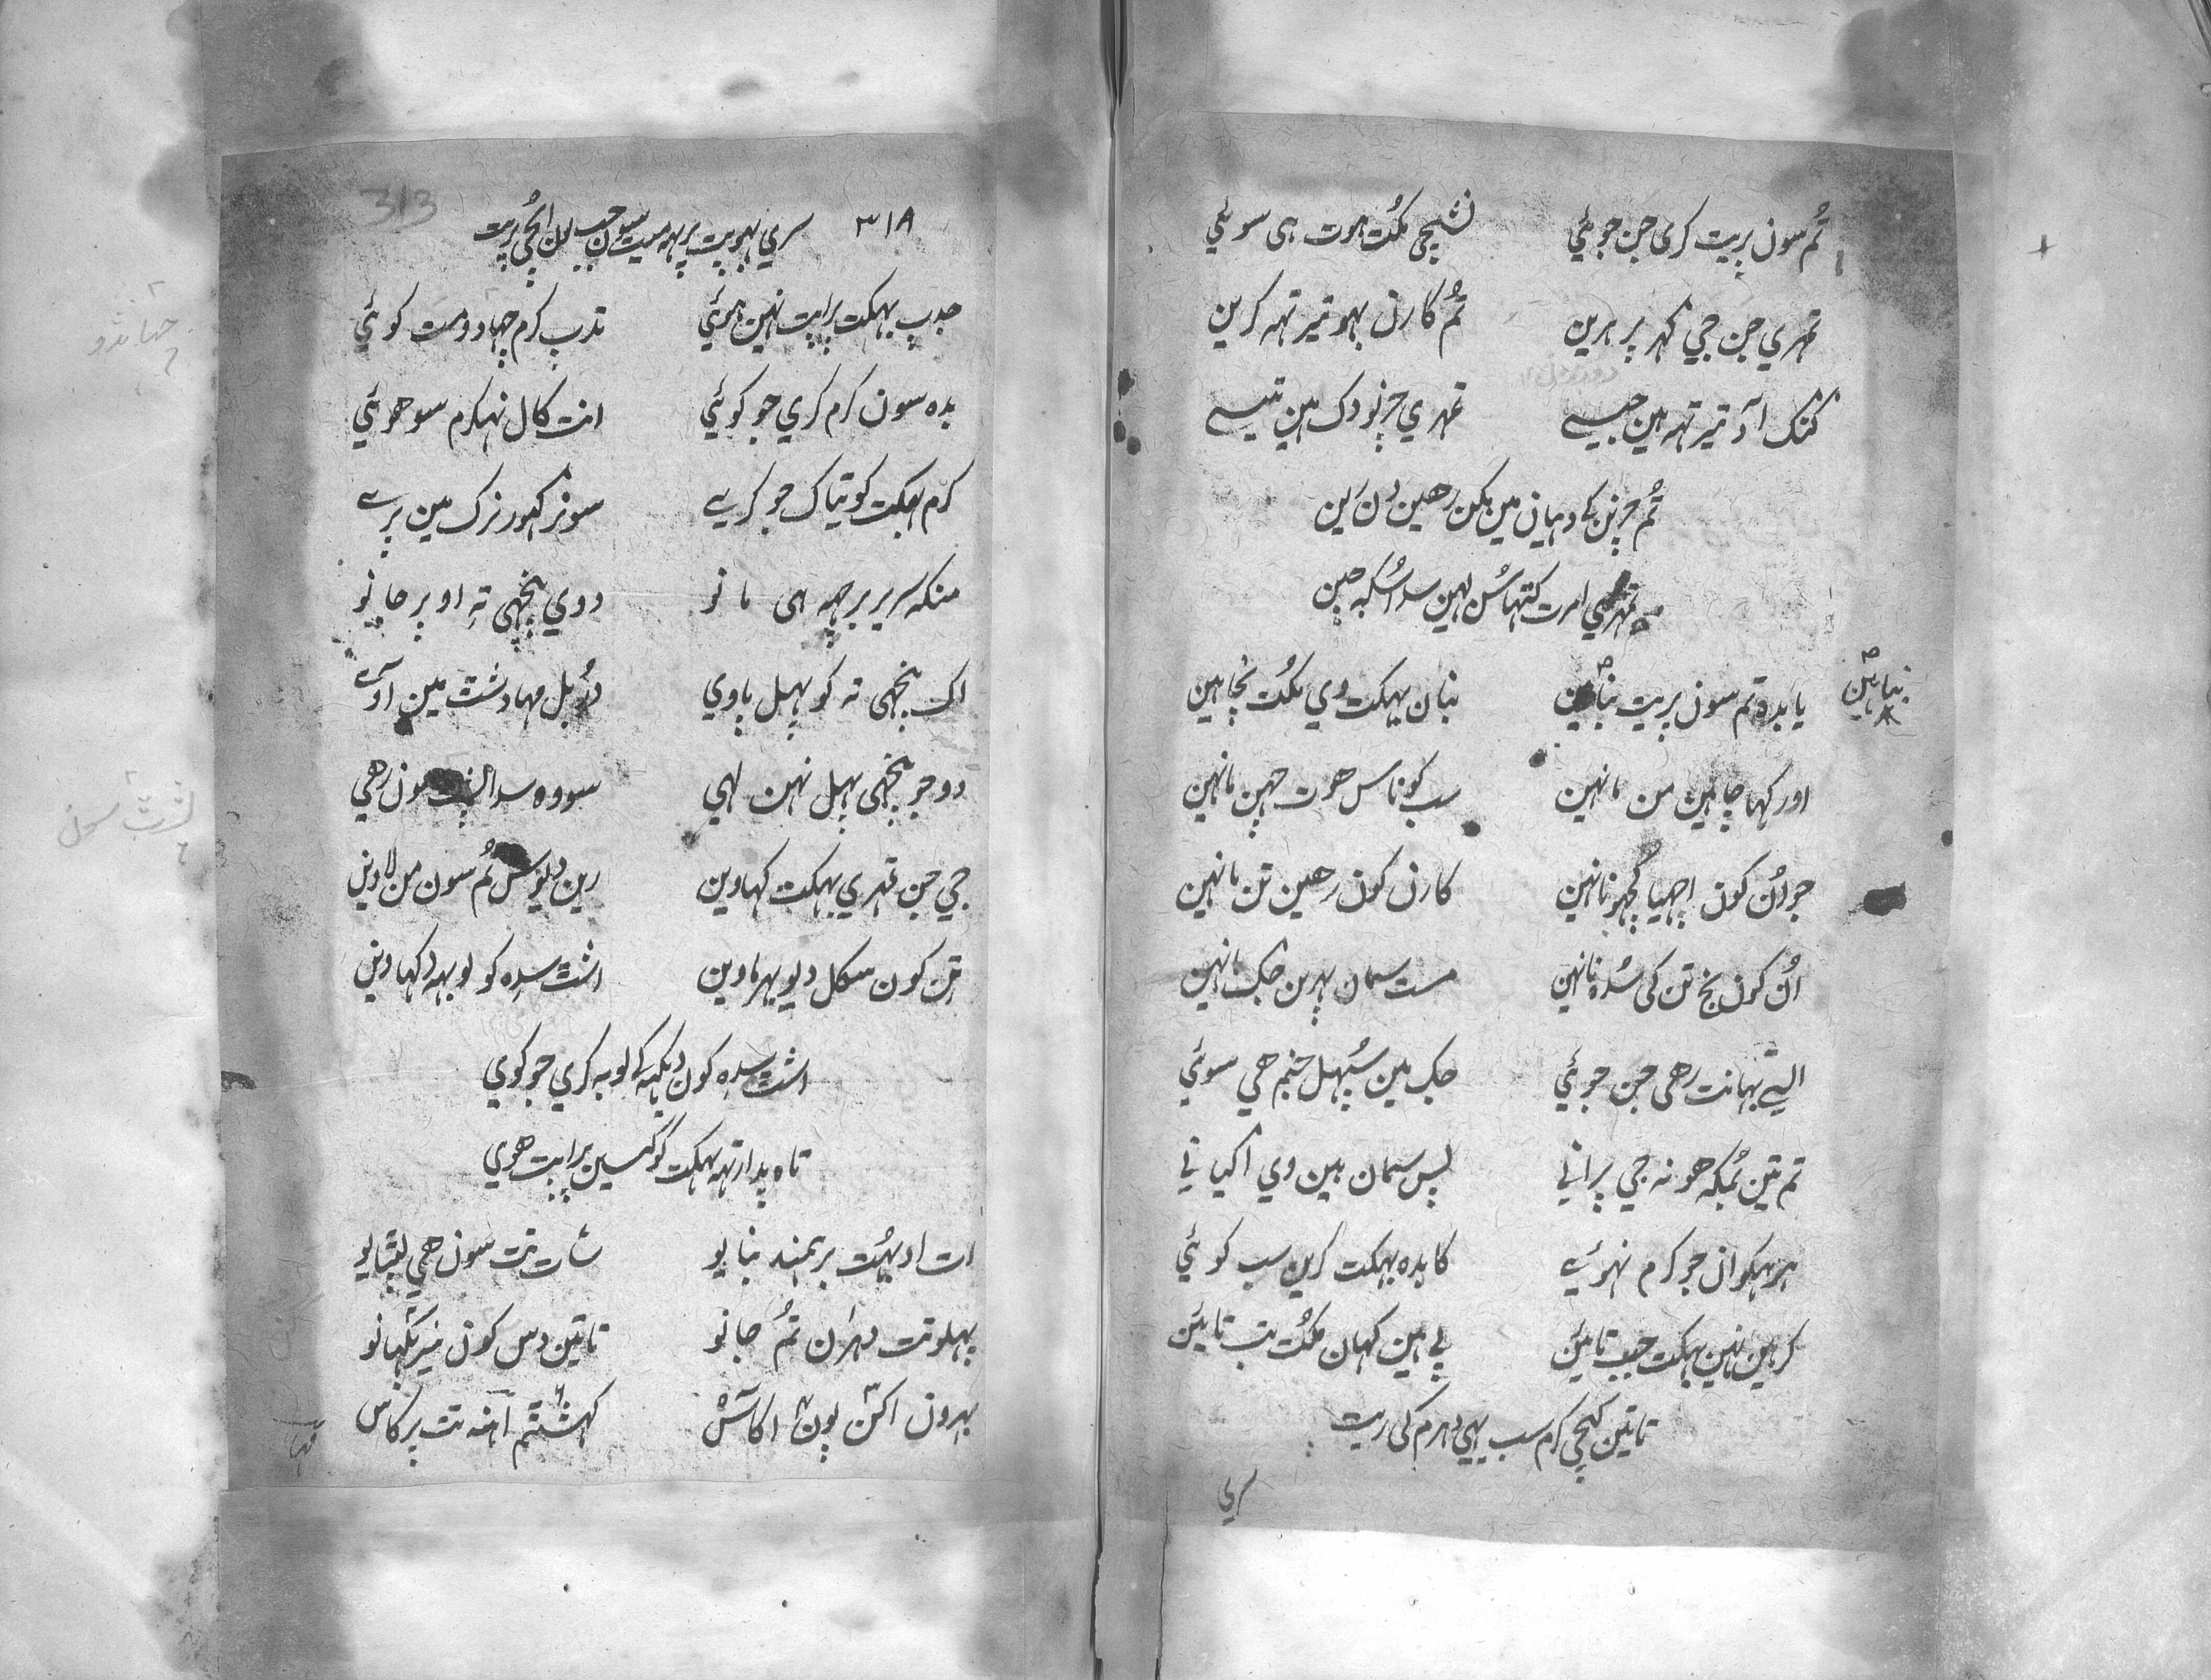 تُم سون پریت کری جن جوئي نشچی مکُت ہوت ہی سوئي
تمہري جن جي کہر پر ہرین تُم کارن بہو تیرتہہ کرین
کنک آد تیرتہہ ہین جیسے تمہري چرنودک ہین تیسے
تُم چرنن کے دہیان مین مکن رھین دن رین
تمہري امرت کتہا سُن لہین سدا سُکہہ چین
یا بدہ تم سون پریت نباہین نباہین
بنان بہکت وي مکُت نچاہین
اور کہا چاہین من مانہین سب کو ناس ھوت جہین مانہین
جو اُن کون اچہیا کچہو نانہین کارن کون رھین تن مانہین
اُن کون نج تن کی سُدہ نانہین مست سمان پہرین جک مانہین
ایسے بہانت رھی جن جوئي جک مین سُپہل جنم ھي سوئي
تم تین بمُکہہ ھونہ جي پراني پس سمان ہین وي اکیاني
ہر بہکوان جو کرم نہوئے کا بدہ بہکت کرین سب کوئي
کرہین نہین بہکت جب تائین پے ہین کہان مکُت تب تائین
تاتین کیجي کرم سب یہي دہرم کی ریت
سري
٣١٨
313
سري بہوپت پرہہ میت سون جب لون اُپجي پریت
جدپ بہکت پراپت نہین ہوئي تدپ کرم چہادومت کوئي
بدہ سون کرم کري جو کوئي انت کال نہکرم سو ھوئي
کرم بہکت کو تیاک جو کریے سو نر کہور نرک مین پرے
منکہہ سریر برچہہ ہی مانو دوي پنچہي تہ اوبر جانو
اک پنچہي تہ کو پہل پاوي دُربل مہا دشٹ مین آوے
دوجو پنچہي پہل نہن لہي سو وہ سدا سون رھي
جي جن تمہري بہکت کہاوین رین دیوس تُم سون من لاوین
تن کون سکل دیو بہرماوین اشٹ سدہ کو لوبہہ دکہاوین
اشٹ سدہ کون دیکہہ کے لوبہ کري جو کوي
تاہ پدارتہہ بہکت کو کیسین پراپت ھوي
ات ادبہُت برہمنڈ بنایو سات تت سون ھي لپٹایو
پہلو تت دہرن تُم جانو تاتین دس کون نیر بکہانو
بہرون اکن پون اکاش کہشٹم اہنہ تت پرکاس